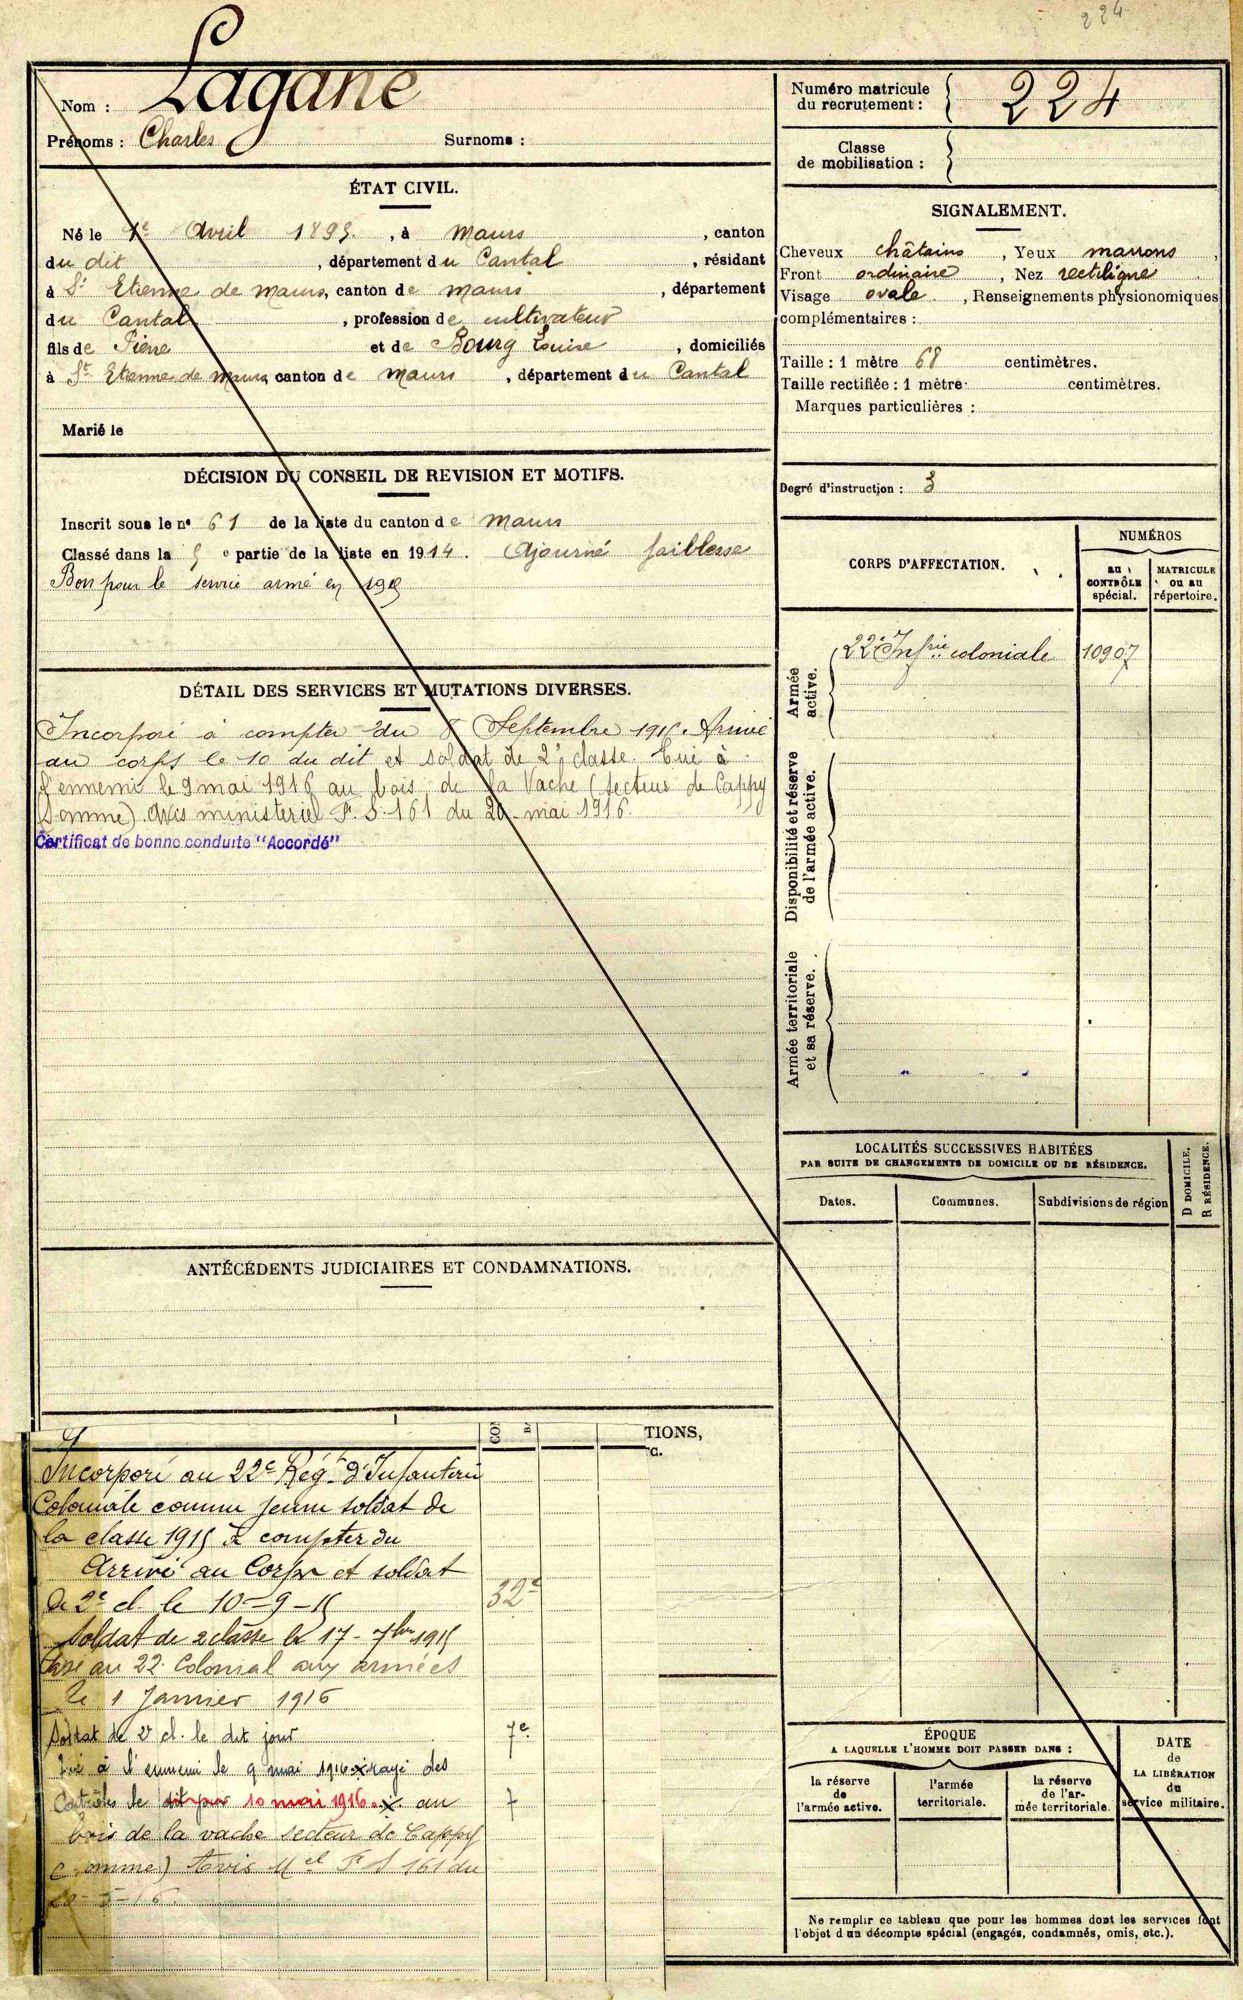 224
Nom : Lagane
Prénoms : Charles Surnoms :
ÉTAT CIVIL.
Né le 1er Avril 1895, à Maurs, canton
du dit, département du Cantal, résidant
à St Etienne de Maurs, canton de Maurs, département
du Cantal, profession de cultivateur
fils de Pierre et de Bourg Louise, domiciliés
à St Etienne de Maurs canton de Maurs, département du Cantal
Marié le
DÉCISION DU CONSEIL DE REVISION ET MOTIFS.
Inscrit sous le n° 61 de la liste du canton de Maurs
Classé dans la 5e partie de la liste en 1914. Ajourné faiblesse
Bon pour le service armé en
DÉTAIL DES SERVICES ET MUTATIONS DIVERSES.
Incorporé à compter du 8 Septembre 1915. Arrivé
au corps le 10 du dit et soldat de 2e classe. Tué à
l'ennemi le 9 mai 1916 au bois de la Vache (secteur de Cappy
Somme). Avis ministeriel F. S. 161 du 20 mai 1916.
Certificat de bonne conduite "Accordé"
ANTÉCÉDENTS JUDICIAIRES ET CONDAMNATIONS.
TIONS,
C.
Incorporé au 22e Régt d'Infanterie
Coloniale comme jeune soldat de
la classe 1915 à compter du
Arrivé au Corps et soldat
de 2e cl. le 10-9-15 32e
Soldat de 2 classe le 17-7bre 1915
au 22 Colonial aux armées
le 1 Janvier 1916
Soldat de 2e cl. le dit jour 7e
Tué à l'ennemi le 9 mai 1916 x rayé des
Contrôles le dit jour 10 mai 1916. x au 7
bois de la vache secteur de Cappy
(Somme) Avis Mel F S 161 du
20-5-16.
Numéro matricule
du recrutement : 224
Classe
de mobilisation :
SIGNALEMENT.
Cheveux châtains, Yeux marrons,
Front ordinaire, Nez rectiligne
Visage ovale, Renseignements physionomiques
complémentaires :
Taille : 1 mètre 68 centimètres.
Taille rectifiée : 1 mètre centimètres.
Marques particulières :
Degré d'instruction : 3
CORPS D'AFFECTATION.
NUMÉROS
au CONTRÔLE spécial.
MATRICULE ou au répertoire.
Armée active.
22e Infrie coloniale 10907
Disponibilité et réserve de l'armée active.
Armée territoriale et sa réserve.
LOCALITÉS SUCCESSIVES HABITÉES
PAR SUITE DE CHANGEMENTS DE DOMICILE OU DE RÉSIDENCE.
Dates. Communes. Subdivisions de région
D DOMICILE.
R RÉSIDENCE.
ÉPOQUE
A LAQUELLE L'HOMME DOIT PASSER DANS :
la réserve de l'armée active.
l'armée territoriale.
la réserve de l'armée territoriale.
DATE
de
LA LIBÉRATION
du
service militaire.
Ne remplir ce tableau que pour les hommes dont les services font
l'objet d'un décompte spécial (engagés, condamnés, omis, etc.).